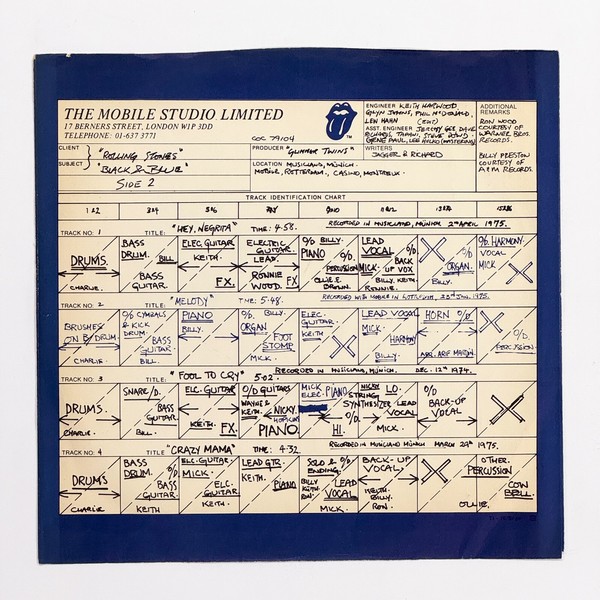 THE MOBILE STUDIO LIMITED
17 BERNERS STREET, LONDON W1P 3DD
TELEPHONE: 01-637 3771
COC 79104
CLIENT "ROLLING STONES"
SUBJECT "BLACK & BLUE"
SIDE 2
PRODUCER "GLIMMER TWINS"
LOCATION MUSICLAND, MÜNICH.
MOBILE, ROTTERDAM. CASINO, MONTREUX.
TM
ENGINEER KEITH HARWOOD,
GLYN JOHNS, PHIL McDONALD,
LEW HAHN (EDIT)
ASST. ENGINEER JEREMY GEE DAVE
RICHARDS, TAPANI, STEVE DOWD
GENE PAUL, LEE HULKO (MASTERING)
WRITERS
JAGGER & RICHARD
ADDITIONAL
REMARKS
RON WOOD
COURTESY OF
WARNER BROS.
RECORDS.
BILLY PRESTON
COURTESY OF
A&M RECORDS.
TRACK IDENTIFICATION CHART
1&2 3&4 5&6 7&8 9&10 11&12 13&14 15&16
TRACK NO: 1 TITLE: "HEY, NEGRITA" TIME: 4.58. RECORDED IN MUSICLAND, MÜNICH 2nd APRIL 1975.
DRUMS.
CHARLIE.
BASS
DRUM. BILL.
BASS
GUITAR
ELEC. GUITAR
KEITH.
FX.
ELECTRIC
GUITAR.
LEAD
RONNIE
WOOD. FX
O/D BILLY.
PIANO O/D
PERCUSSION
OLLIE E.
BROWN.
LEAD
VOCAL O/D
MICK. BACK
UP VOX
BILLY. KEITH.
RONNIE.
O/D
ORGAN.
BILLY.
O/D. HARMONY
VOCAL
MICK
TRACK NO: 2 TITLE: "MELODY" TIME: 5.48. RECORDED WITH MOBILE IN ROTTERDAM. 23rd JAN, 1975.
BRUSHES
ON B/DRUM
CHARLIE.
O/D CYMBALS
& KICK
DRUM.
BASS
GUITAR.
BILL.
PIANO
BILLY.
O/D. BILLY.
ORGAN
FOOT
STOMP
MICK.
ELEC.
GUITAR
KEITH
LEAD VOCAL
MICK.
HARMONY
BILLY.
HORN O/D
ARR. ARIF MARDIN.
O/D.
PERCUSSION.
TRACK NO: 3 TITLE: "FOOL TO CRY" 5.02. RECORDED IN MUSICLAND, MÜNICH, DEC. 12th 1974.
DRUMS.
CHARLIE.
SNARE/D.
BASS
GUITAR
BILL.
ELC. GUITAR
KEITH. FX.
O/D GUITARS
WAYNE &
KEITH. NICKY.
HOPKINS
PIANO.
MICK
ELEC. PIANO
O/D.
HI.
NICKY LO.
STRING
SYNTHESIZER LEAD
VOCAL
MICK.
O/D
BACK-UP
VOCAL
TRACK NO: 4 TITLE "CRAZY MAMA" TIME: 4.32. RECORDED IN MUSICLAND MÜNICH MARCH 29th 1975.
DRUMS
CHARLIE
BASS
DRUM. O/D
BASS
GUITAR.
KEITH
ELC. GUITAR.
MICK.
ELC.
GUITAR
KEITH.
LEAD GTR.
KEITH.
PIANO
SOLO &
ENDING.
BILLY
KEITH.
RON. LEAD
VOCAL
MICK.
BACK-UP
VOCAL
KEITH.
BILLY.
RON.
OTHER.
PERCUSSION
COW
BELL.
OLLIE.